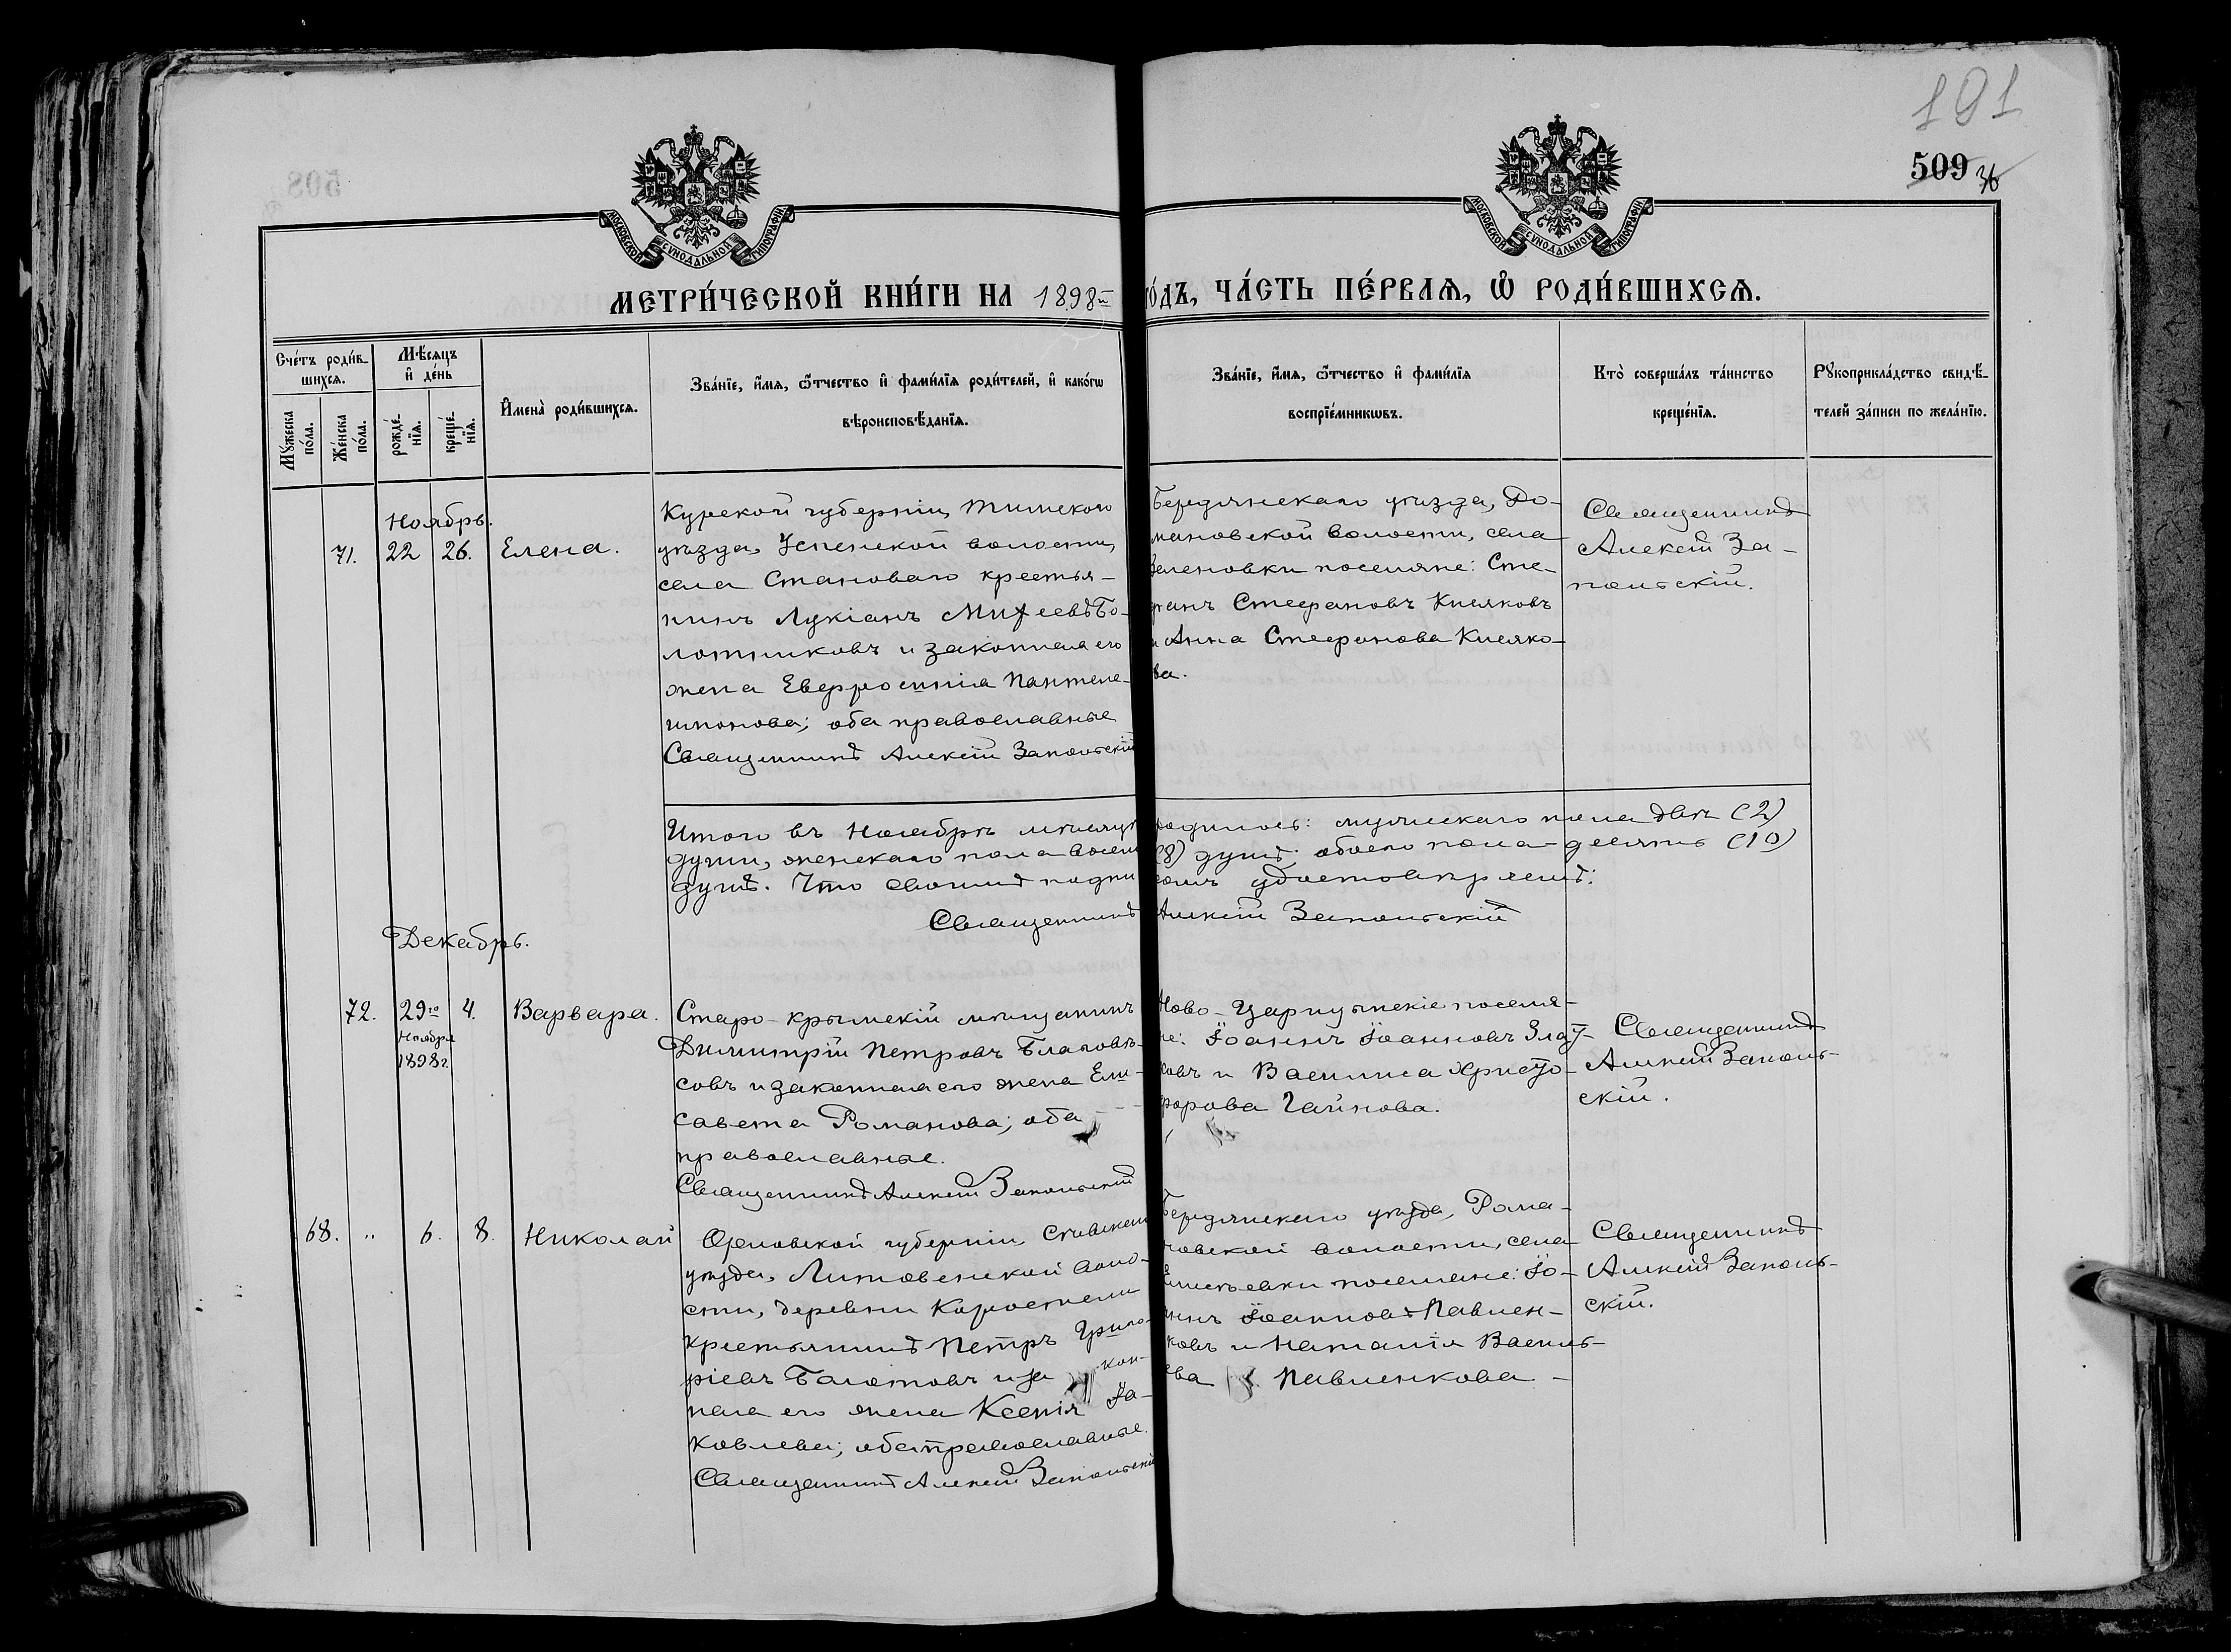 191
509 36
МОСКОВСКОЙ СѴНОДАЛЬНОЙ ТИПОГРАФІИ
МОСКОВСКОЙ СѴНОДАЛЬНОЙ ТИПОГРАФІИ
МЕТРИ́ЧЕСКОЙ КНИ́ГИ НА 1898й ГО́ДЪ, ЧА́СТЬ ПЕ́РВАЯ, Ѡ РОДИ́ВШИХСЯ.
Сче́тъ роди́вшихся.
Мꙋ́жеска по́ла.
Же́нска по́ла.
Мѣ́сяцъ и де́нь
рожде́нїѧ.
креще́нїѧ.
И҆мена̀ роди́вшихсѧ.
Зва́нїе, и҆́мѧ, ѻ҆́тчество и҆ фами́лїѧ роди́телей, и҆ како́гѡ
вѣроисповѣ́данїѧ.
Зва́нїе, и҆́мѧ, ѻ҆́тчество и҆ фами́лїѧ
воспрїе́мникѡвъ.
Кто̀ соверша́лъ та́инство
креще́нїѧ.
Рꙋкоприкла́дство свидѣ́-
телей за́писи по жела́нїю.
Ноябрь.
71. 22 26. Елена.
Курской губерніи, Тимскаго
уѣзда, Успенской волости,
села Становаго крестья-
нинъ Лукіанъ Михеевъ Бо-
лотниковъ и законная его
жена Евфросинія Пантеле-
имонова; оба православные
Священникъ Алексій Запольскій
Бердянскаго уѣзда, До-
мановской волости, села
Зеленовки поселяне: Сте-
фанъ Стефановъ Кисяковъ
и Анна Стефанова Кисяко-
ва.
Священникъ
Алексій За-
польскій.
Итого въ Ноябрѣ мѣсяцѣ родилось: мужескаго пола двѣ (2)
души, женскаго пола восемь (8) душъ; обоего пола десять (10)
душъ. Что своимъ подписомъ удостовѣряемъ:
Священникъ Алексій Запольскій
Декабрь.
72. 29го 4. Варвара.
Ноября
1898 г.
Старо-крымскій мѣщанинъ
Димитрій Петровъ Благовѣ-
совъ и законная его жена Ели-
савета Романова; оба
православные.
Священникъ Алексій Запольскій
Ново-Царицынскіе поселя-
не: Іоаннъ Іоанновъ Злат-
ковъ и Василиса Христо-
форова Гайнова.
Священникъ
Алексій Заполь-
скій.
68. " 6. 8. Николай
Орловской губерніи, Сѣвскаго
уѣзда, Литовенской воло-
сти, деревни
крестьянинъ Петръ Григо-
ріевъ Болотовъ и за кон-
ная его жена Ксенія Іа-
ковлева; оба православные.
Священникъ Алексій Запольскій
Бердянскаго уѣзда, Рома-
новской волости, села
поселяне: Іо-
аннъ Іоанновъ Павлен-
ковъ и Наталія Василь-
ева Павленкова
Священникъ
Алексій Заполь-
скій.